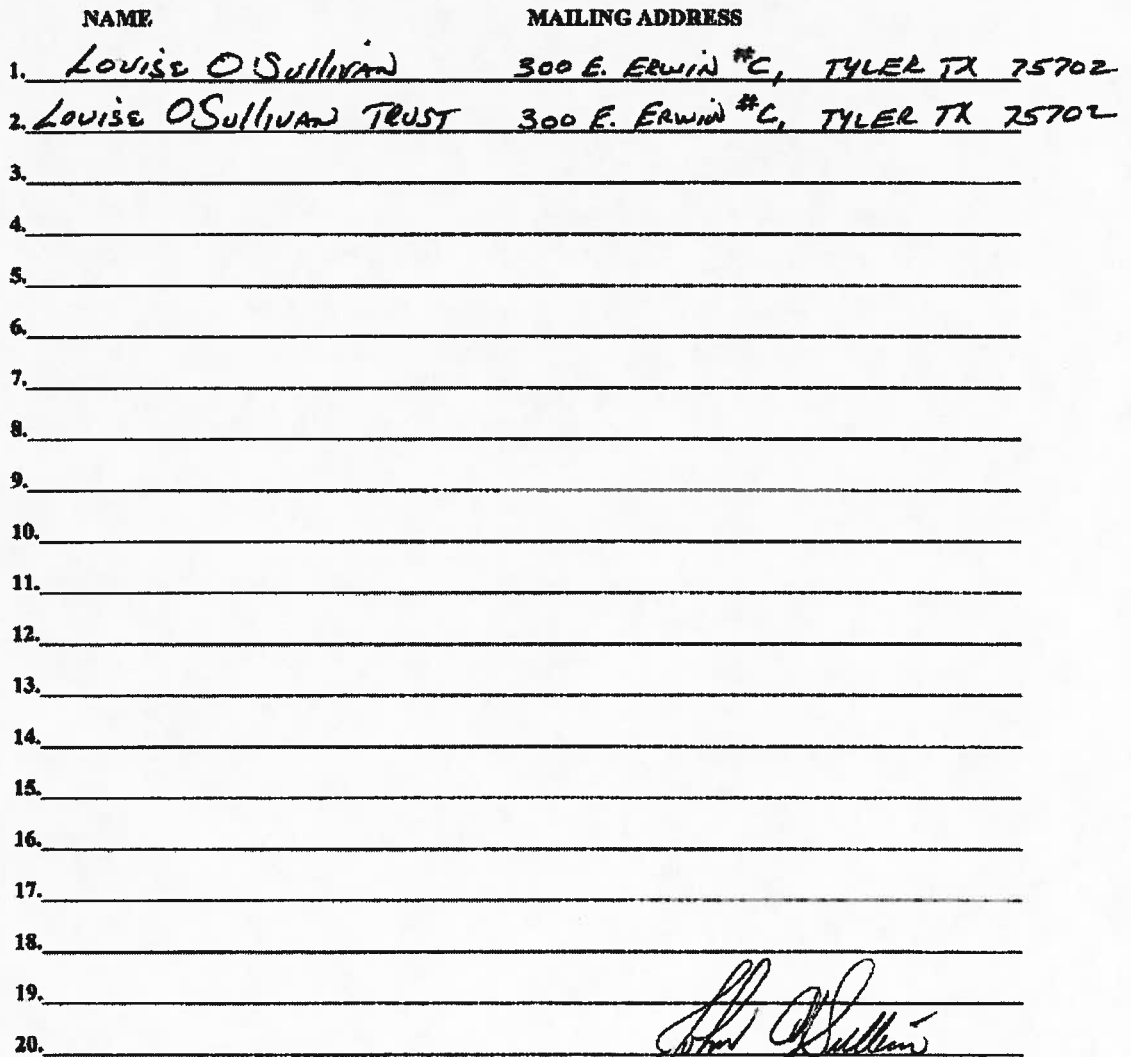 NAME MAILING ADDRESS
1. Louise O'Sullivan 300 E. ERWIN #C, TYLER TX 75702
2. Louise OSullivan TRUST 300 E. ERWIN #C, TYLER TX 75702
3.
4.
5.
6.
7.
8.
9.
10.
11.
12.
13.
14.
15.
16.
17.
18.
19.
20. John O'Sullivan